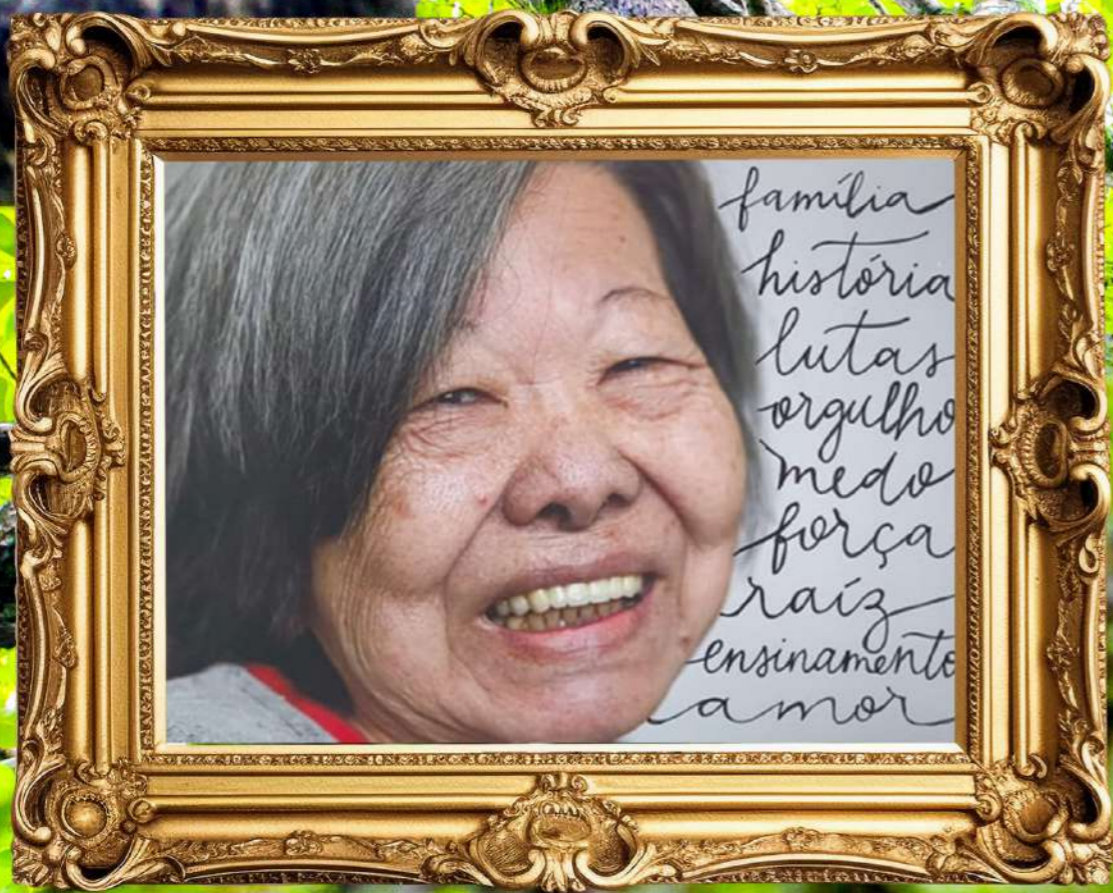 família
história
lutas
orgulho
medo
força
raíz
ensinamento
amor